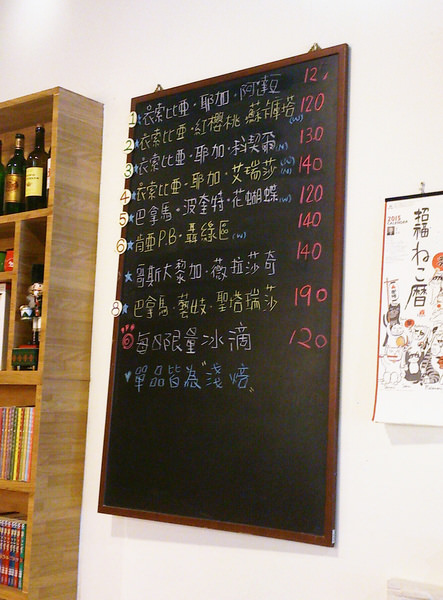 1 衣索比亞·耶加·阿達豆 12
2 衣索比亞·紅櫻桃 蘇卡庫塔(W) 120
3 衣索比亞·耶加·科契爾(N) 130
4 衣索比亞·耶加·艾瑞莎(N)(W) 140
5 巴拿馬·波奎特·花蝴蝶(W) 120
6 肯亞P.B·聶綠區(W) 140
哥斯大黎加·薇拉莎奇 140
8 巴拿馬·藝妓·聖塔瑞莎 190
每日限量冰滴 120
♥單品皆為"淺焙"
2015
CALENDAR
招福
ねこ暦